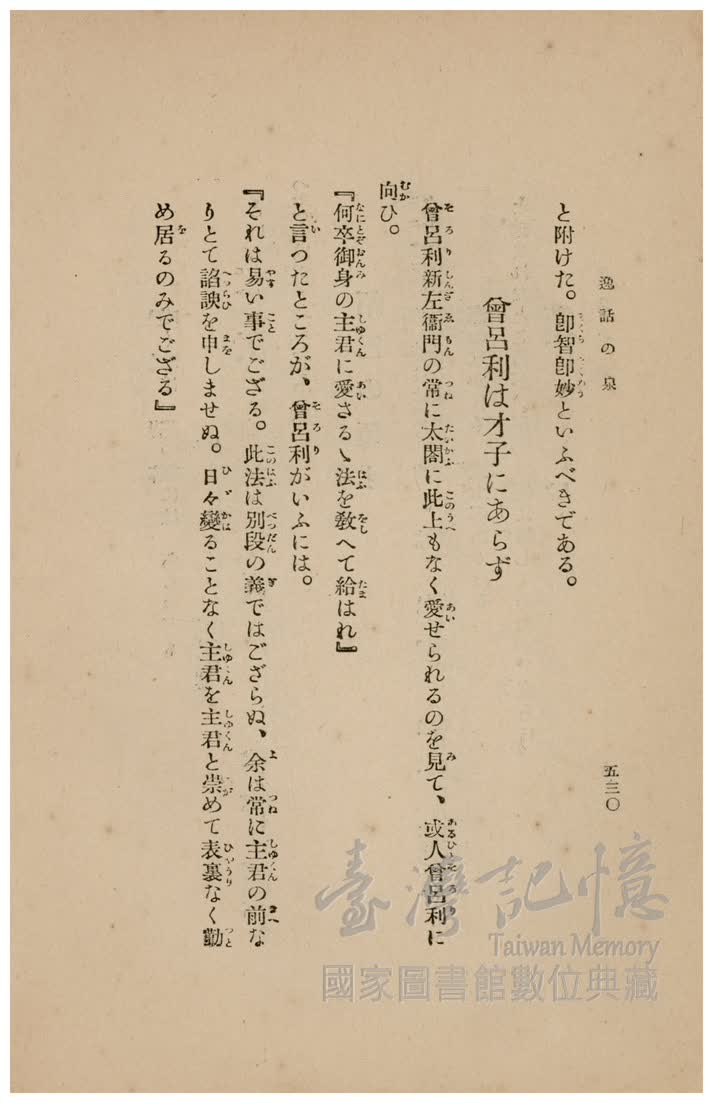 逸話の泉
五三〇
と附けた。卽智卽妙といふべきである。
曾呂利は才子にあらず
曾呂利新左衞門の常に太閤に此上もなく愛せられるのを見て、或人曾呂利に
向ひ。
『何卒御身の主君に愛さるゝ法を敎へて給はれ』
と言つたところが、曾呂利がいふには。
『それは易い事でござる。此法は別段の義ではござらぬ、余は常に主君の前な
りとて諂諛を申しませぬ。日々變ることなく主君を主君と崇めて表裏なく勤
め居るのみでござる』
臺灣記憶
Taiwan Memory
國家圖書館數位典藏